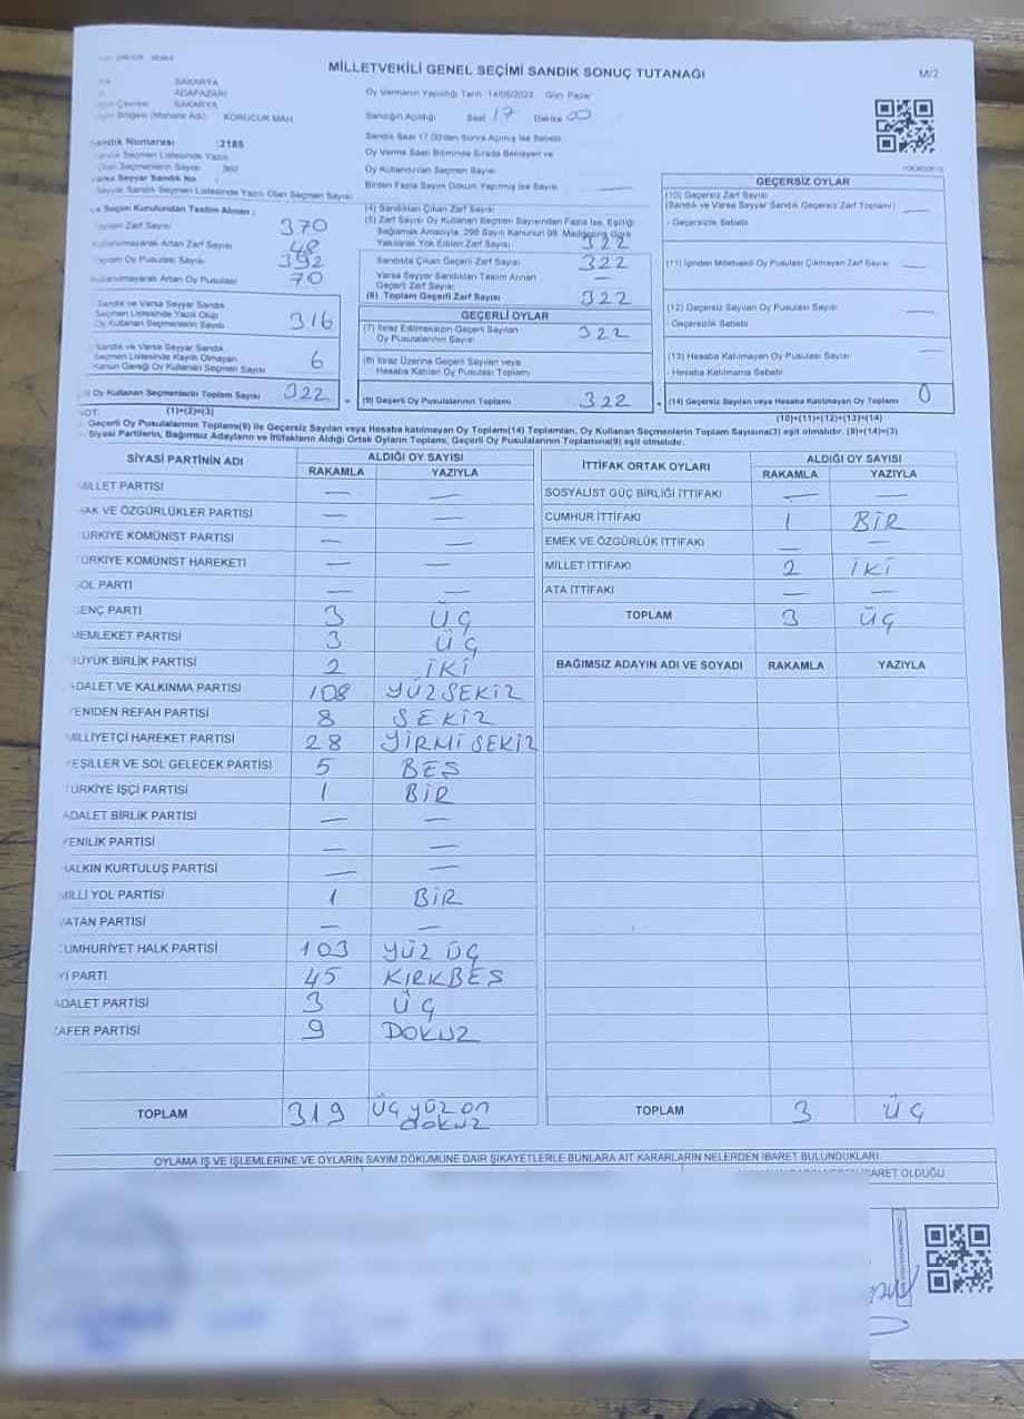 MİLLETVEKİLİ GENEL SEÇİMİ SANDIK SONUÇ TUTANAĞI
M/2
SAKARYA
ADAPAZARI
SAKARYA
KORUCUK MAH.
Oy Vermenin Yapıldığı Tarih 14/05/2023 Gün Pazar
Sandığın Açıldığı Saat 17 Dakika 00
Sandık Numarası :2186
Sandık Saat 17.00'den Sonra Açılmış İse Sebebi
Oy Verme Saati Bitiminde Sırada Bekleyen ve
Oy Kullandırılan Seçmen Sayısı
Birden Fazla Sayım Döküm Yapılmış İse Sayısı —
Seyyar Sandık No
Seyyar Sandık Seçmen Listesinde Yazılı Olan Seçmen Sayısı
Seçim Kurulundan Teslim Alınan ;
Zarf Sayısı 370
Kullanılmayarak Artan Zarf Sayısı 48
Oy Pusulası Sayısı 392
Kullanılmayarak Artan Oy Pusulası 70
Sandık ve Varsa Seyyar Sandık
Seçmen Listesinde Yazılı Olup
Oy Kullanan Seçmenlerin Sayısı 316
Sandık ve Varsa Seyyar Sandık
Seçmen Listesinde Kayıtlı Olmayan
Kanun Gereği Oy Kullanan Seçmen Sayısı 6
Oy Kullanan Seçmenlerin Toplam Sayısı 322
(1)+(2)=(3)
(4) Sandıktan Çıkan Zarf Sayısı
(5) Zarf Sayısı Oy Kullanan Seçmen Sayısından Fazla İse, Eşitliği
Sağlamak Amacıyla, 298 Sayılı Kanunun 98. Maddesine Göre
Yakılarak Yok Edilen Zarf Sayısı 322
Sandıkta Çıkan Geçerli Zarf Sayısı 322
Varsa Seyyar Sandıktan Teslim Alınan
Geçerli Zarf Sayısı —
(6) Toplam Geçerli Zarf Sayısı 322
GEÇERLİ OYLAR
(7) İtiraz Edilmeksizin Geçerli Sayılan
Oy Pusulalarının Sayısı 322
(8) İtiraz Üzerine Geçerli Sayılan veya
Hesaba Katılan Oy Pusulası Toplamı
(9) Geçerli Oy Pusulalarının Toplamı 322
GEÇERSİZ OYLAR
(10) Geçersiz Zarf Sayısı
(Sandık ve Varsa Seyyar Sandık Geçersiz Zarf Toplamı) —
- Geçersizlik Sebebi
(11) İçinden Milletvekili Oy Pusulası Çıkmayan Zarf Sayısı —
(12) Geçersiz Sayılan Oy Pusulası Sayısı —
Geçersizlik Sebebi
(13) Hesaba Katılmayan Oy Pusulası Sayısı —
- Hesaba Katılmama Sebebi
(14) Geçersiz Sayılan veya Hesaba Katılmayan Oy Toplamı 0
(10)+(11)+(12)+(13)=(14)
NOT:
- Geçerli Oy Pusulalarının Toplamı(9) ile Geçersiz Sayılan veya Hesaba katılmayan Oy Toplamı(14) Toplamları, Oy Kullanan Seçmenlerin Toplam Sayısına(3) eşit olmalıdır. (9)+(14)=(3)
- Siyasi Partilerin, Bağımsız Adayların ve İttifakların Aldığı Ortak Oyların Toplamı, Geçerli Oy Pusulalarının Toplamına(9) eşit olmalıdır.
SİYASİ PARTİNİN ADI ALDIĞI OY SAYISI
RAKAMLA YAZIYLA
MİLLET PARTİSİ — —
HAK VE ÖZGÜRLÜKLER PARTİSİ — —
TÜRKİYE KOMÜNİST PARTİSİ — —
TÜRKİYE KOMÜNİST HAREKETİ — —
SOL PARTİ — —
GENÇ PARTİ 3 ÜÇ
MEMLEKET PARTİSİ 3 ÜÇ
BÜYÜK BİRLİK PARTİSİ 2 İKİ
ADALET VE KALKINMA PARTİSİ 108 YÜZSEKİZ
YENİDEN REFAH PARTİSİ 8 SEKİZ
MİLLİYETÇİ HAREKET PARTİSİ 28 YİRMİSEKİZ
YEŞİLLER VE SOL GELECEK PARTİSİ 5 BEŞ
TÜRKİYE İŞÇİ PARTİSİ 1 BİR
ADALET BİRLİK PARTİSİ — —
YENİLİK PARTİSİ — —
HALKIN KURTULUŞ PARTİSİ — —
MİLLİ YOL PARTİSİ 1 BİR
VATAN PARTİSİ — —
CUMHURİYET HALK PARTİSİ 103 YÜZ ÜÇ
İYİ PARTİ 45 KIRKBEŞ
ADALET PARTİSİ 3 ÜÇ
ZAFER PARTİSİ 9 DOKUZ
TOPLAM 319 ÜÇ YÜZ ON
DOKUZ
İTTİFAK ORTAK OYLARI ALDIĞI OY SAYISI
RAKAMLA YAZIYLA
SOSYALİST GÜÇ BİRLİĞİ İTTİFAKI — —
CUMHUR İTTİFAKI 1 BİR
EMEK VE ÖZGÜRLÜK İTTİFAKI — —
MİLLET İTTİFAKI 2 İKİ
ATA İTTİFAKI — —
TOPLAM 3 ÜÇ
BAĞIMSIZ ADAYIN ADI VE SOYADI RAKAMLA YAZIYLA
TOPLAM 3 ÜÇ
OYLAMA İŞ VE İŞLEMLERİNE VE OYLARIN SAYIM DÖKÜMÜNE DAİR ŞİKAYETLERLE BUNLARA AİT KARARLARIN NELERDEN İBARET BULUNDUKLARI
İBARET OLDUĞU